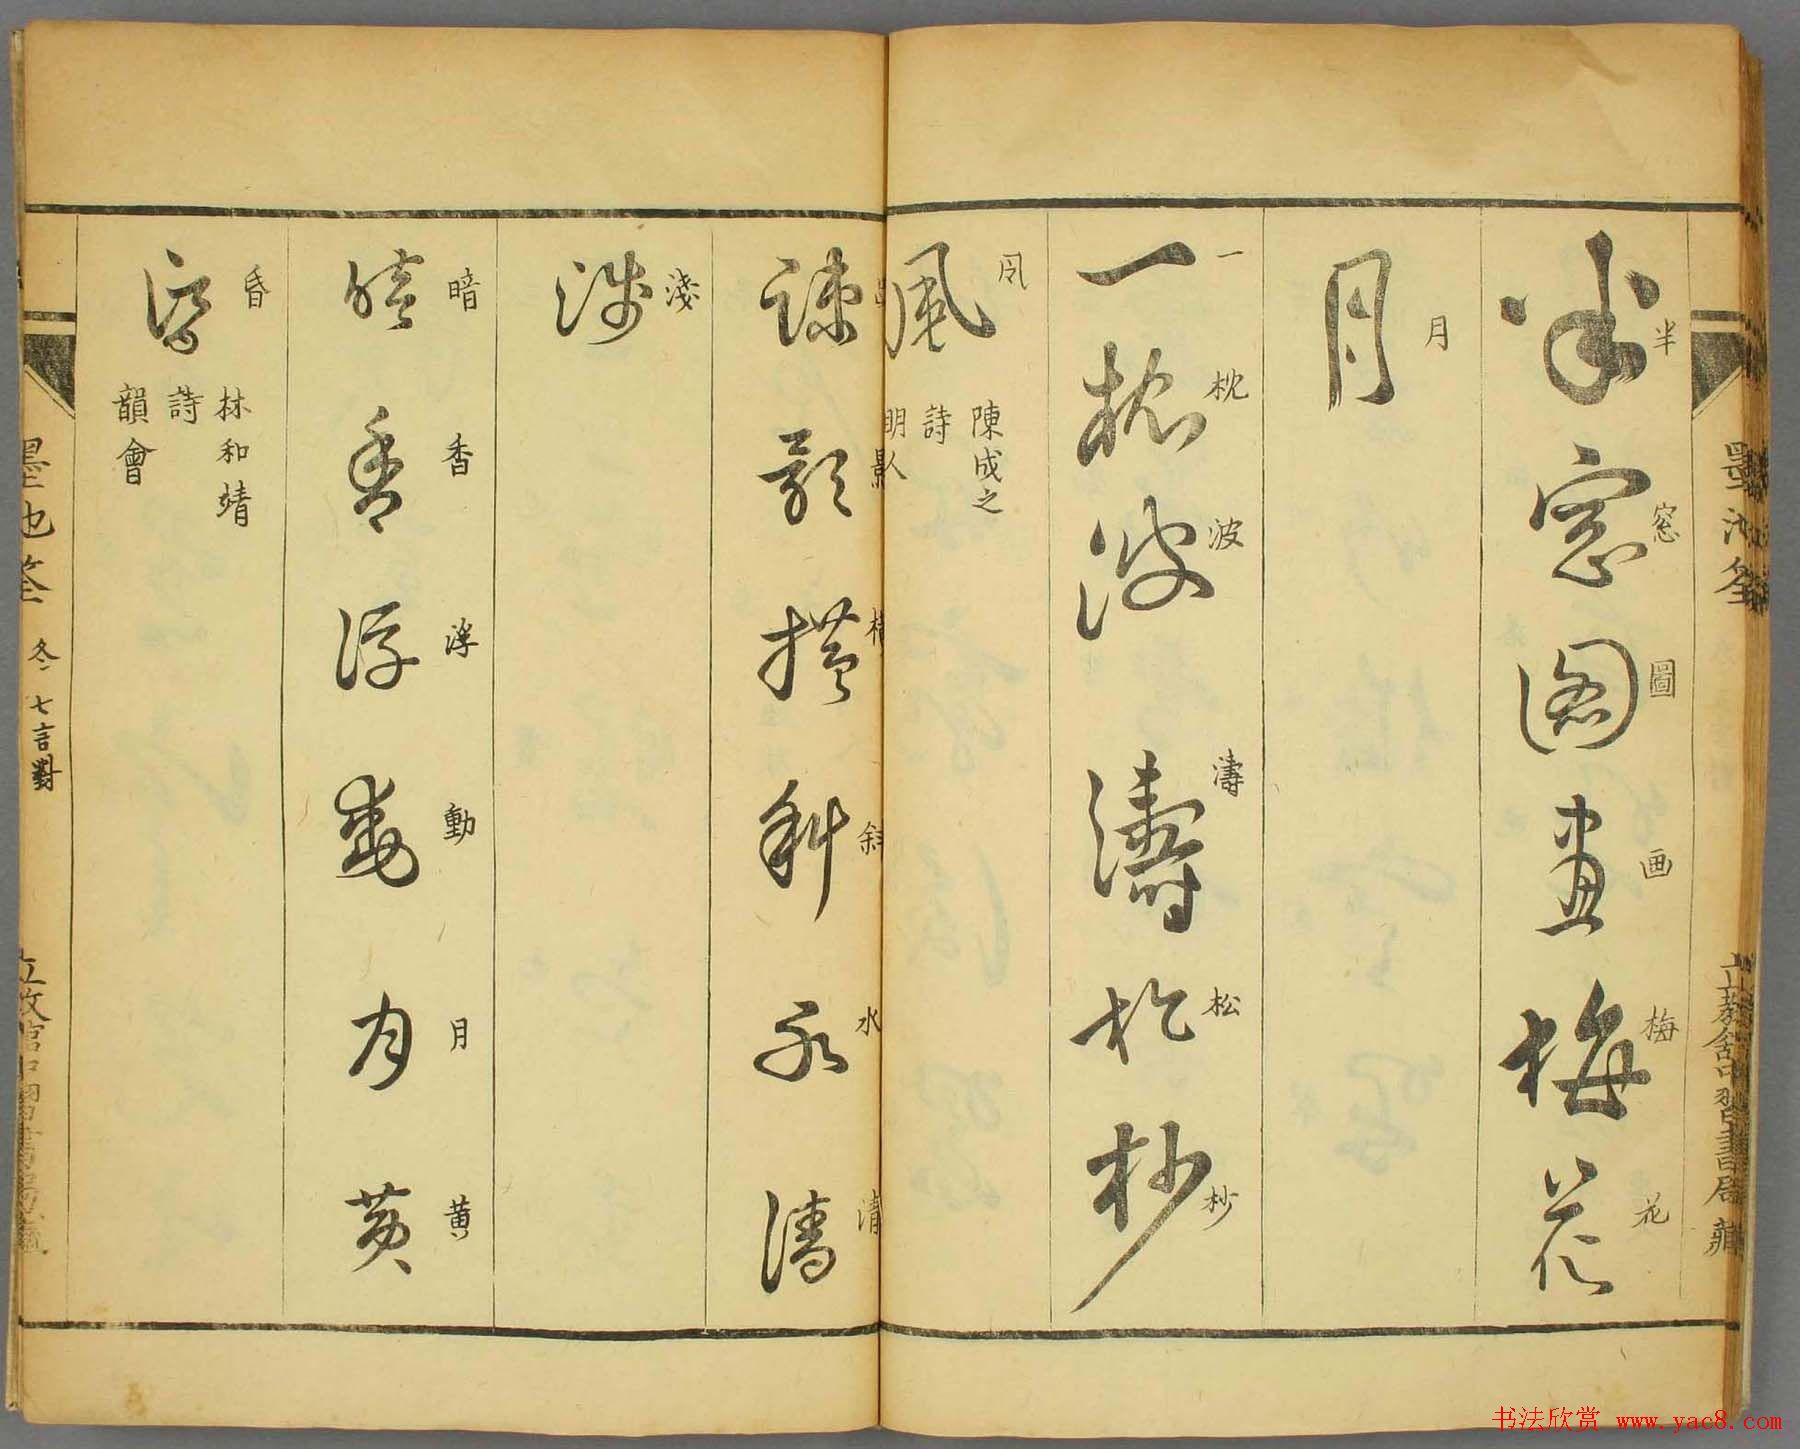 半窓圖畫梅花
半窓圖画梅花
月
月
一枕波濤松杪
一枕波濤松杪
風
凨
陳成之
詩
明人
疎影橫斜水清
影橫斜水清
淺
淺
暗香浮動月黄
暗香浮動月黄
昏
昏
林和靖
詩
韻會
墨池
冬 七言對
书法欣赏 www.yac8.com